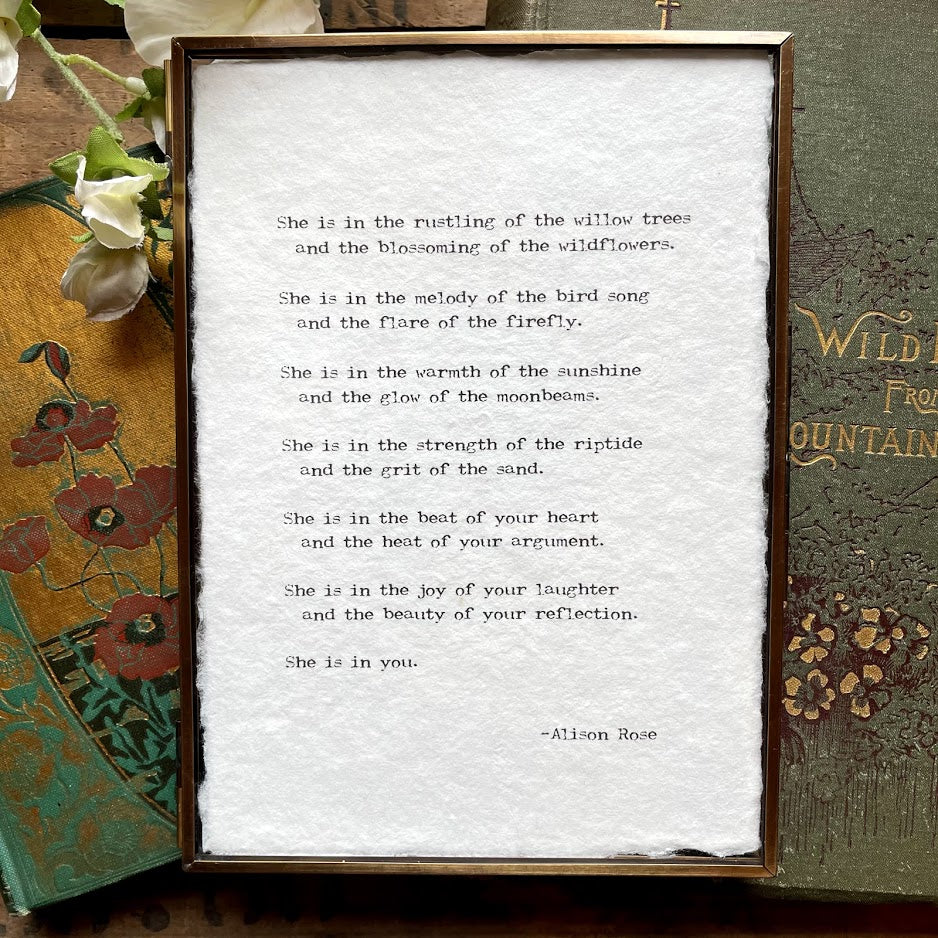 She is in the rustling of the willow trees
and the blossoming of the wildflowers.
She is in the melody of the bird song
and the flare of the firefly.
She is in the warmth of the sunshine
and the glow of the moonbeams.
She is in the strength of the riptide
and the grit of the sand.
She is in the beat of your heart
and the heat of your argument.
She is in the joy of your laughter
and the beauty of your reflection.
She is in you.
-Alison Rose
WILD
FRO
OUNTAIN